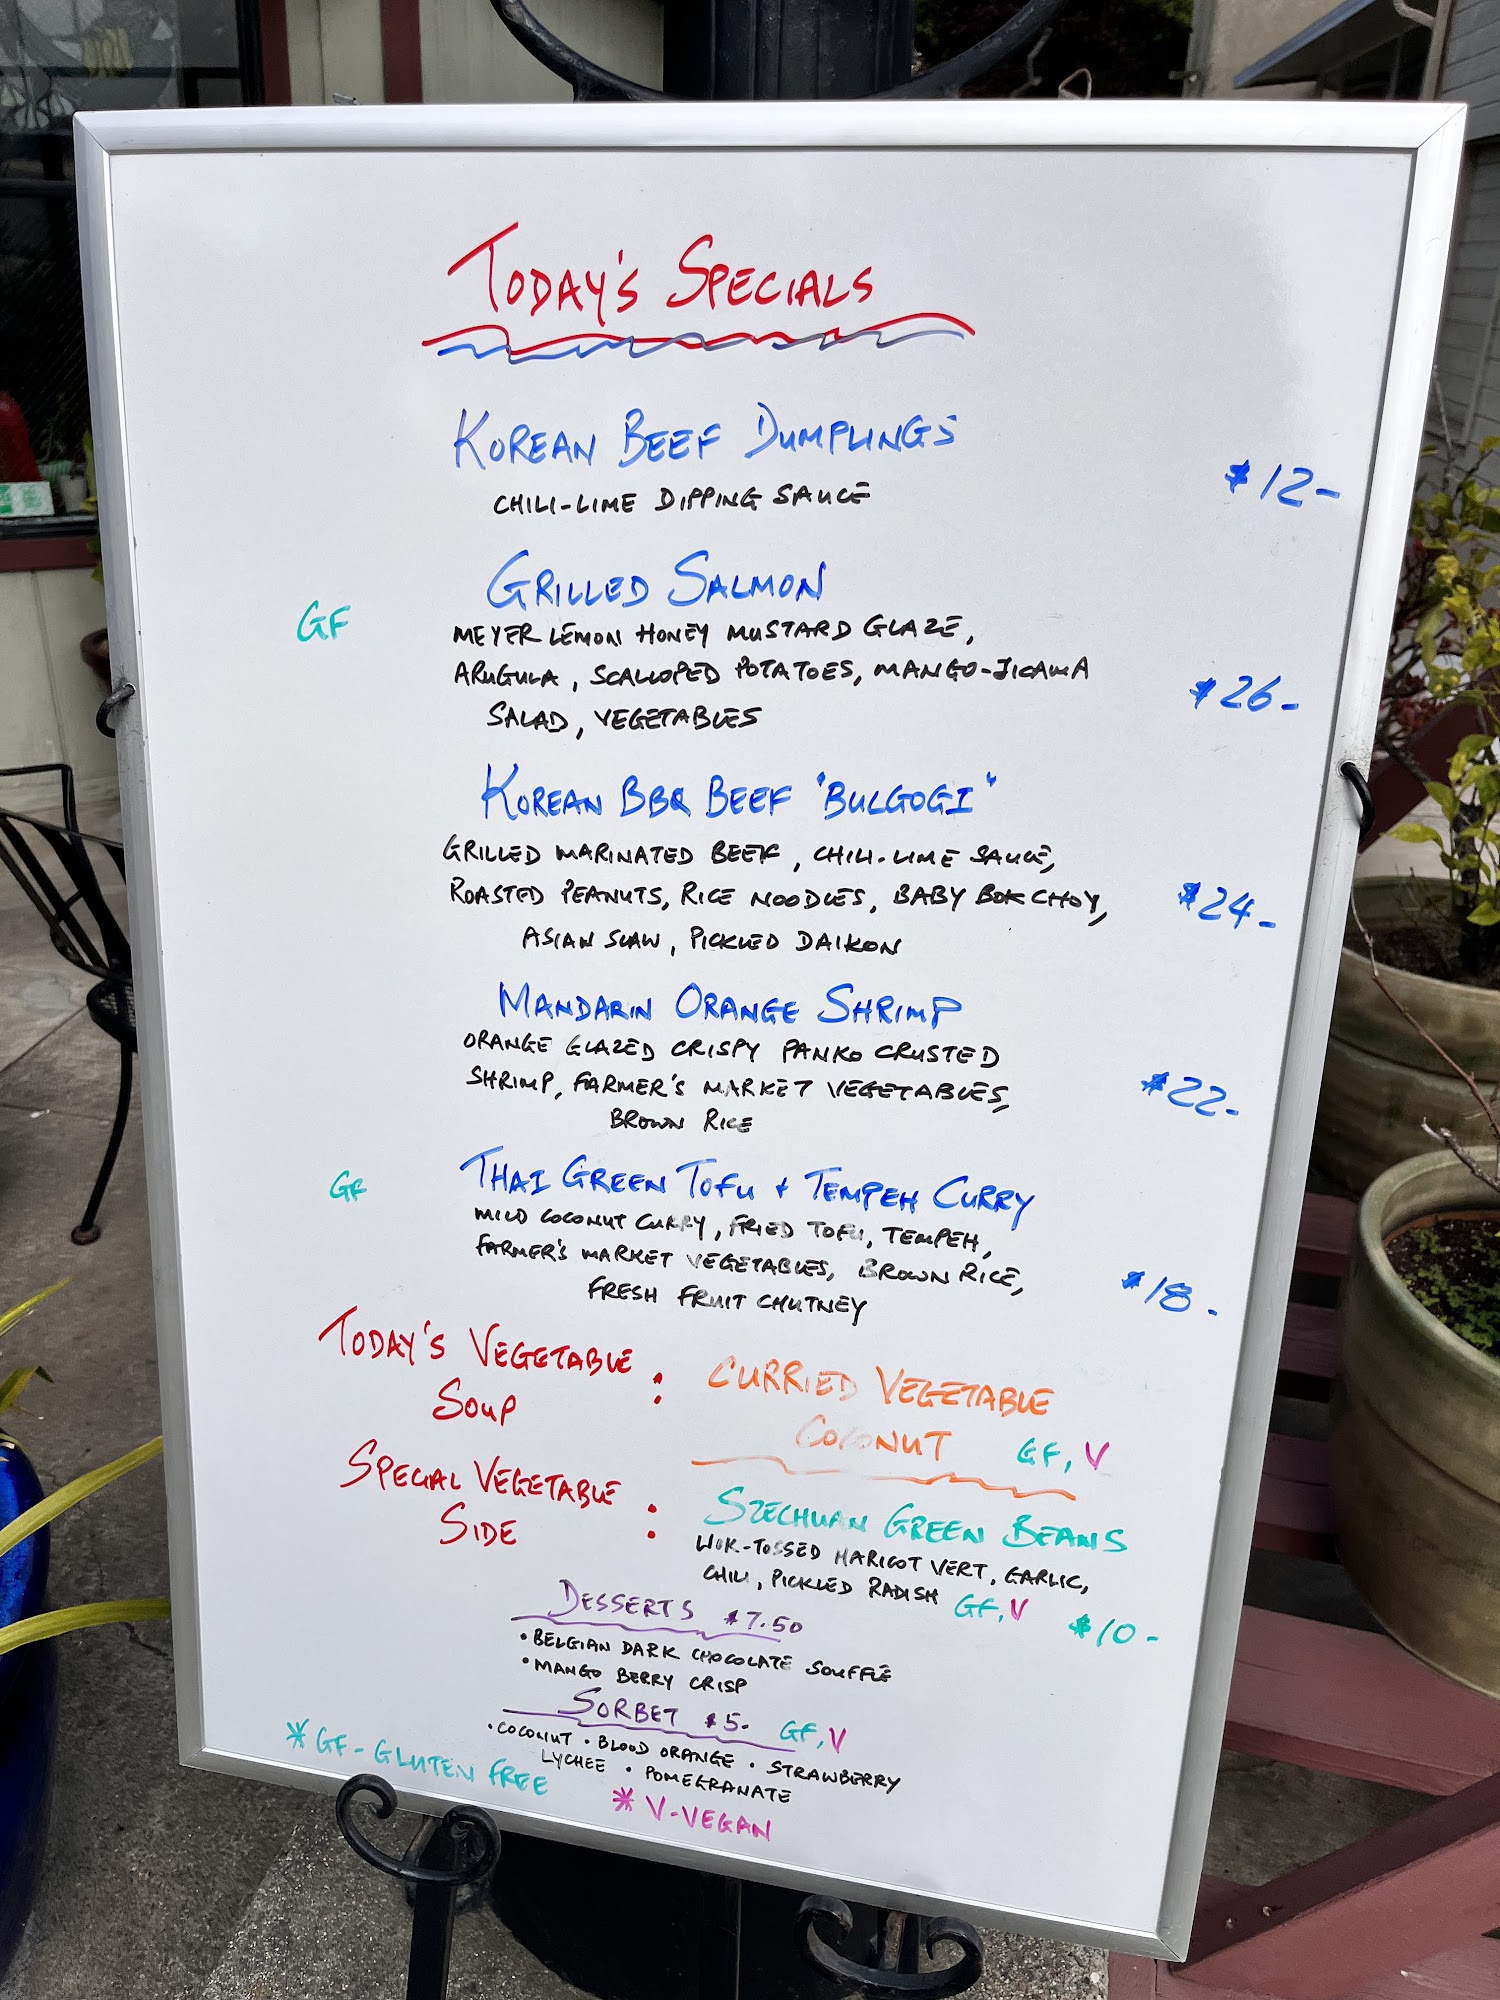 TODAY'S SPECIALS
KOREAN BEEF DUMPLINGS
CHILI-LIME DIPPING SAUCE
$12-
GF
GRILLED SALMON
MEYER LEMON HONEY MUSTARD GLAZE,
ARUGULA, SCALLOPED POTATOES, MANGO-JICAMA
SALAD, VEGETABLES
$26-
KOREAN BBQ BEEF "BULGOGI"
GRILLED MARINATED BEEF, CHILI-LIME SAUCE,
ROASTED PEANUTS, RICE NOODLES, BABY BOK CHOY,
ASIAN SLAW, PICKLED DAIKON
$24-
MANDARIN ORANGE SHRIMP
ORANGE GLAZED CRISPY PANKO CRUSTED
SHRIMP, FARMER'S MARKET VEGETABLES,
BROWN RICE
$22-
GF
THAI GREEN TOFU + TEMPEH CURRY
MILD COCONUT CURRY, FRIED TOFU, TEMPEH,
FARMER'S MARKET VEGETABLES, BROWN RICE,
FRESH FRUIT CHUTNEY
$18-
TODAY'S VEGETABLE
SOUP :
CURRIED VEGETABLE
COCONUT GF, V
SPECIAL VEGETABLE
SIDE :
SZECHUAN GREEN BEANS
WOK-TOSSED HARICOT VERT, GARLIC,
CHILI, PICKLED RADISH GF, V $10-
DESSERTS $7.50
• BELGIAN DARK CHOCOLATE SOUFFLE
• MANGO BERRY CRISP
SORBET $5- GF, V
• COCONUT • BLOOD ORANGE • STRAWBERRY
LYCHEE • POMEGRANATE
* GF - GLUTEN FREE
* V-VEGAN